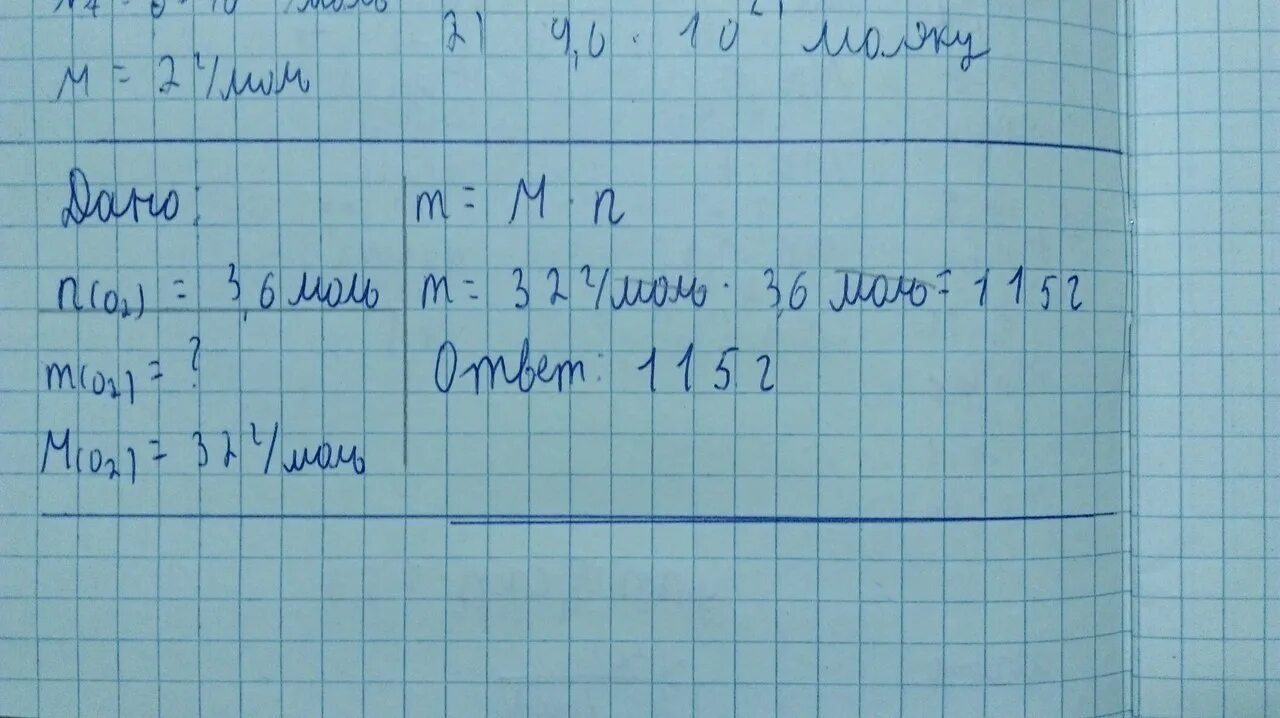 2) 9,0 · 10
M = 2 г/мол
Дано:
n(O2) = 3,6 моль
m(O2) = ?
M(O2) = 32 г/моль
m = M · n
m = 32 г/моль · 3,6 моль = 115 г
Ответ: 115 г